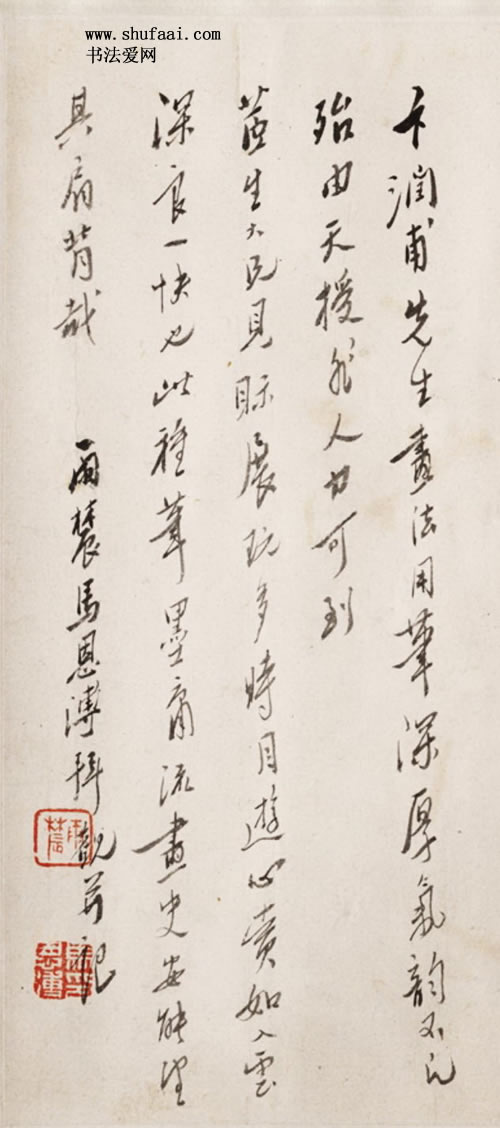 www.shufaai.com
书法爱网
卞潤甫先生畫法用筆深厚氣韵不凡
殆由天授非人力可到
生大兄見眎展玩多時目遊心賞如入雲
深良一快也此種筆墨庸流畫史安能望
其肩背哉 雨辳馬恩溥拜觀并記
雨辳